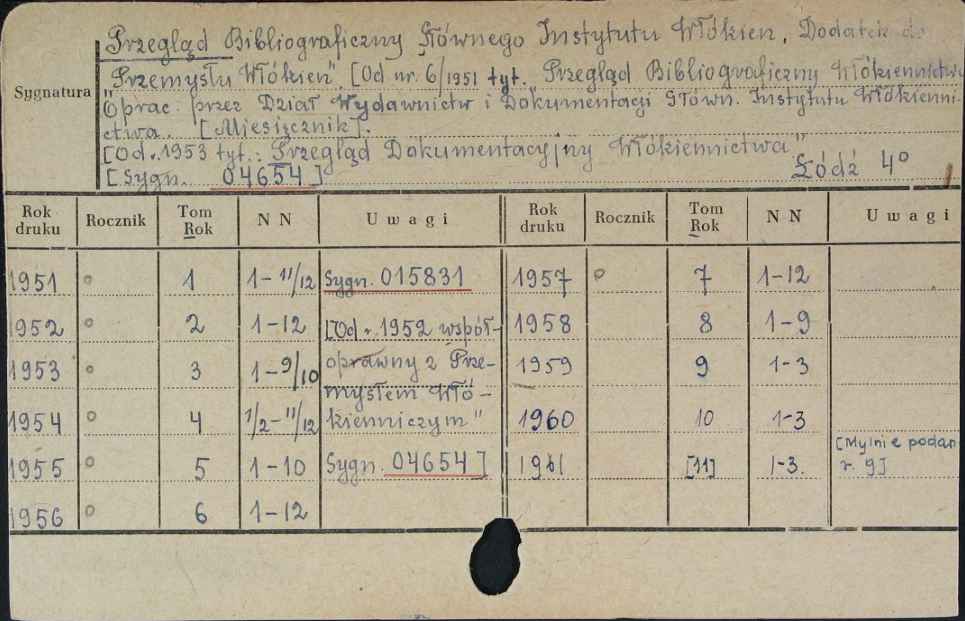 Przegląd Bibliograficzny Głównego Instytutu Włókien. Dodatek do
Sygnatura
"Przemysłu Włókien". [Od nr. 6/1951 tyt. Przegląd Bibliograficzny Włókiennictwa
Oprac. przez Dział Wydawnictw i Dokumentacji Główn. Instytutu Włókienni-
ctwa. [Miesięcznik].
[Od r. 1953 tyt.: Przegląd Dokumentacyjny Włókiennictwa"
[Sygn. 04654] Łódź 4°
Rok druku Rocznik Tom Rok N N Uwagi Rok druku Rocznik Tom Rok N N Uwagi
1951 o 1 1-11/12 Sygn. 015831 1957 o 7 1-12
1952 o 2 1-12 [Od r. 1952 współ- 1958 8 1-9
1953 o 3 1-9/10 oprawny z Prze- 1959 9 1-3
mysłem Włó-
1954 o 4 1/2-11/12 kienniczym" 1960 10 1-3
[Mylnie podan
1955 o 5 1-10 Sygn. 04654] 1961 [11] 1-3. r. 9]
1956 o 6 1-12